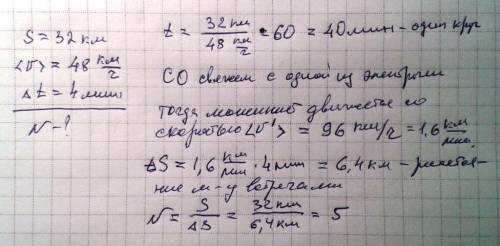 S = 32 км
<v> = 48 км/ч
Δt = 4 мин
N - ?
t = 32 км / 48 км/ч · 60 = 40 мин - один круг
СО свяжем с одной из
тогда движется со
скоростью <v'> = 96 км/ч = 1,6 км/мин.
ΔS = 1,6 км/мин · 4 мин = 6,4 км - расстоя-
ние м-у встречами
N = S/ΔS = 32 км / 6,4 км = 5